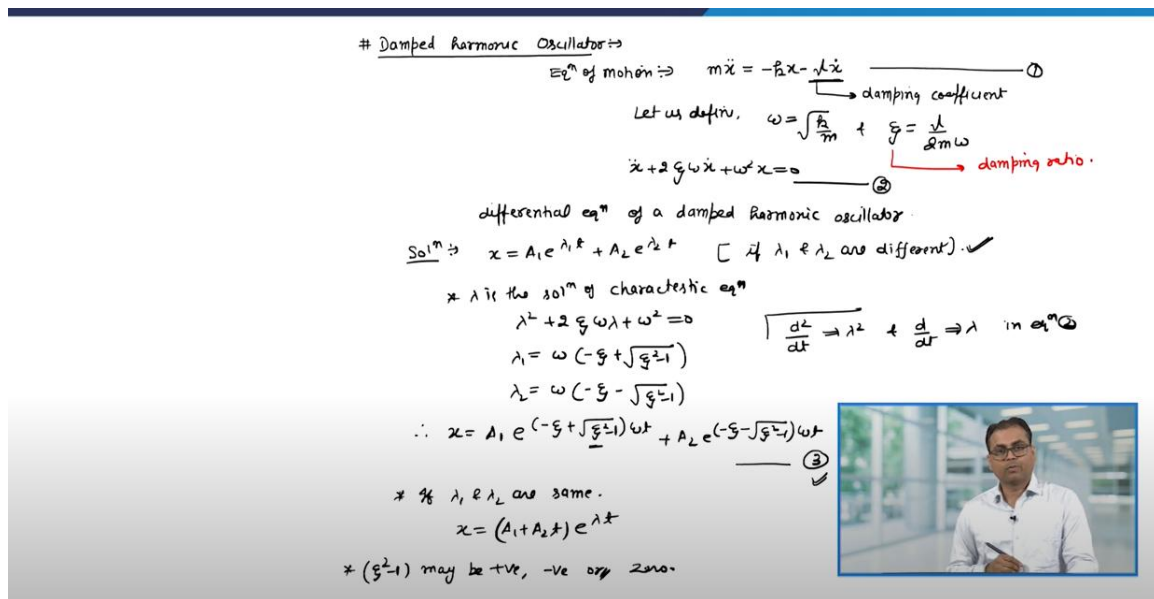 # Damped harmonic Oscillator :⇒
Eqⁿ of motion :⇒ mẍ = -kx - νẋ ——— ①
→ damping coefficient
Let us defin. ω = √(k/m) & ξ = ν/2mω
→ damping ratio.
ẍ + 2ξωẋ + ω²x = 0 ——— ②
differential eqⁿ of a damped harmonic oscillator.
Solⁿ :⇒ x = A₁e^λ₁t + A₂e^λ₂t [ if λ₁ & λ₂ are different]. ✓
* λ is the solⁿ of charactestic eqⁿ
λ² + 2ξωλ + ω² = 0
d²/dt ⇒ λ² & d/dt ⇒ λ in eqⁿ ②
λ₁ = ω (-ξ + √ξ²-1)
λ₂ = ω (-ξ - √ξ²-1)
∴ x = A₁ e^(-ξ + √ξ²-1)ωt + A₂ e^(-ξ - √ξ²-1)ωt
——— ③ ✓
* If λ₁ & λ₂ are same.
x = (A₁ + A₂t) e^λt
* (ξ²-1) may be +ve, -ve or zero.